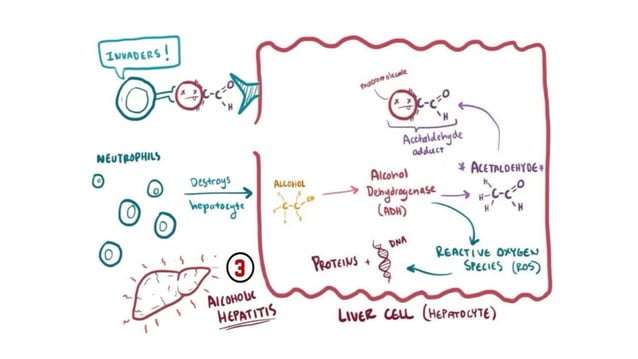 INVADERS!
x x
C-C=O
H
macromolecule
x x
C-C=O
H
Acetaldehyde
adduct
NEUTROPHILS
Destroys
hepatocyte
ALCOHOL
C-C-OH
Alcohol
Dehydrogenase
(ADH)
* ACETALDEHYDE *
H
H-C-C=O
H H
REACTIVE OXYGEN
SPECIES (ROS)
PROTEINS + DNA
3
ALCOHOLIC
HEPATITIS
LIVER CELL (HEPATOCYTE)